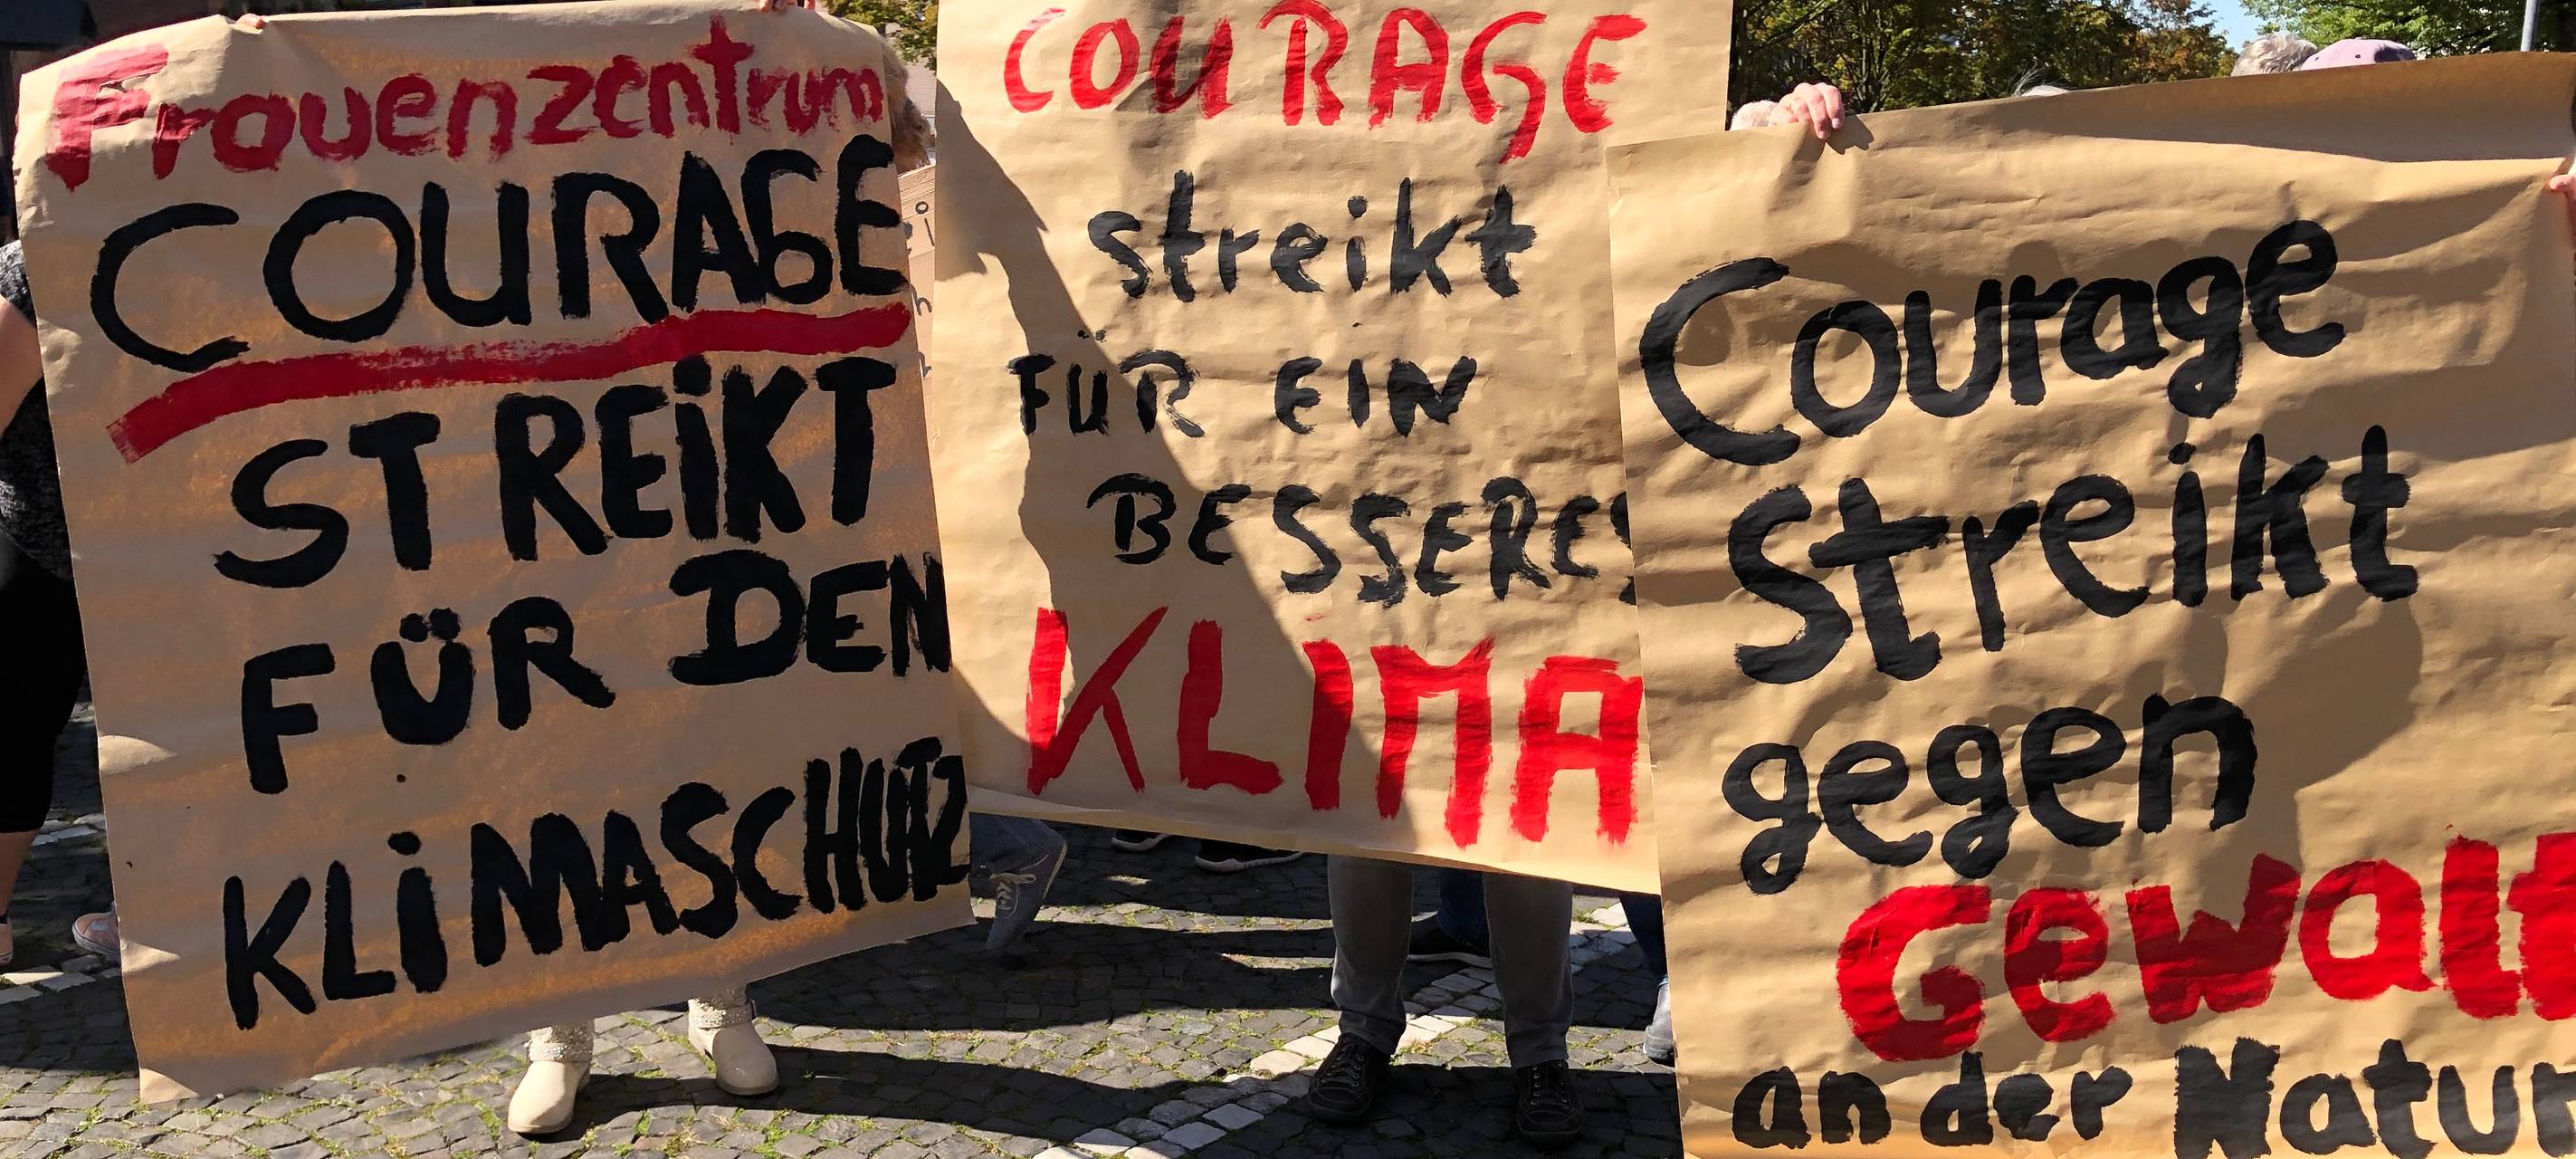 Frauenzentrum
COURAGE
STREiKT
FÜR DEN
KLiMASCHUTZ
COURAGE
streikt
FÜR EIN
BESSERES
KLIMA
Courage
Streikt
gegen
Gewalt
an der Natur